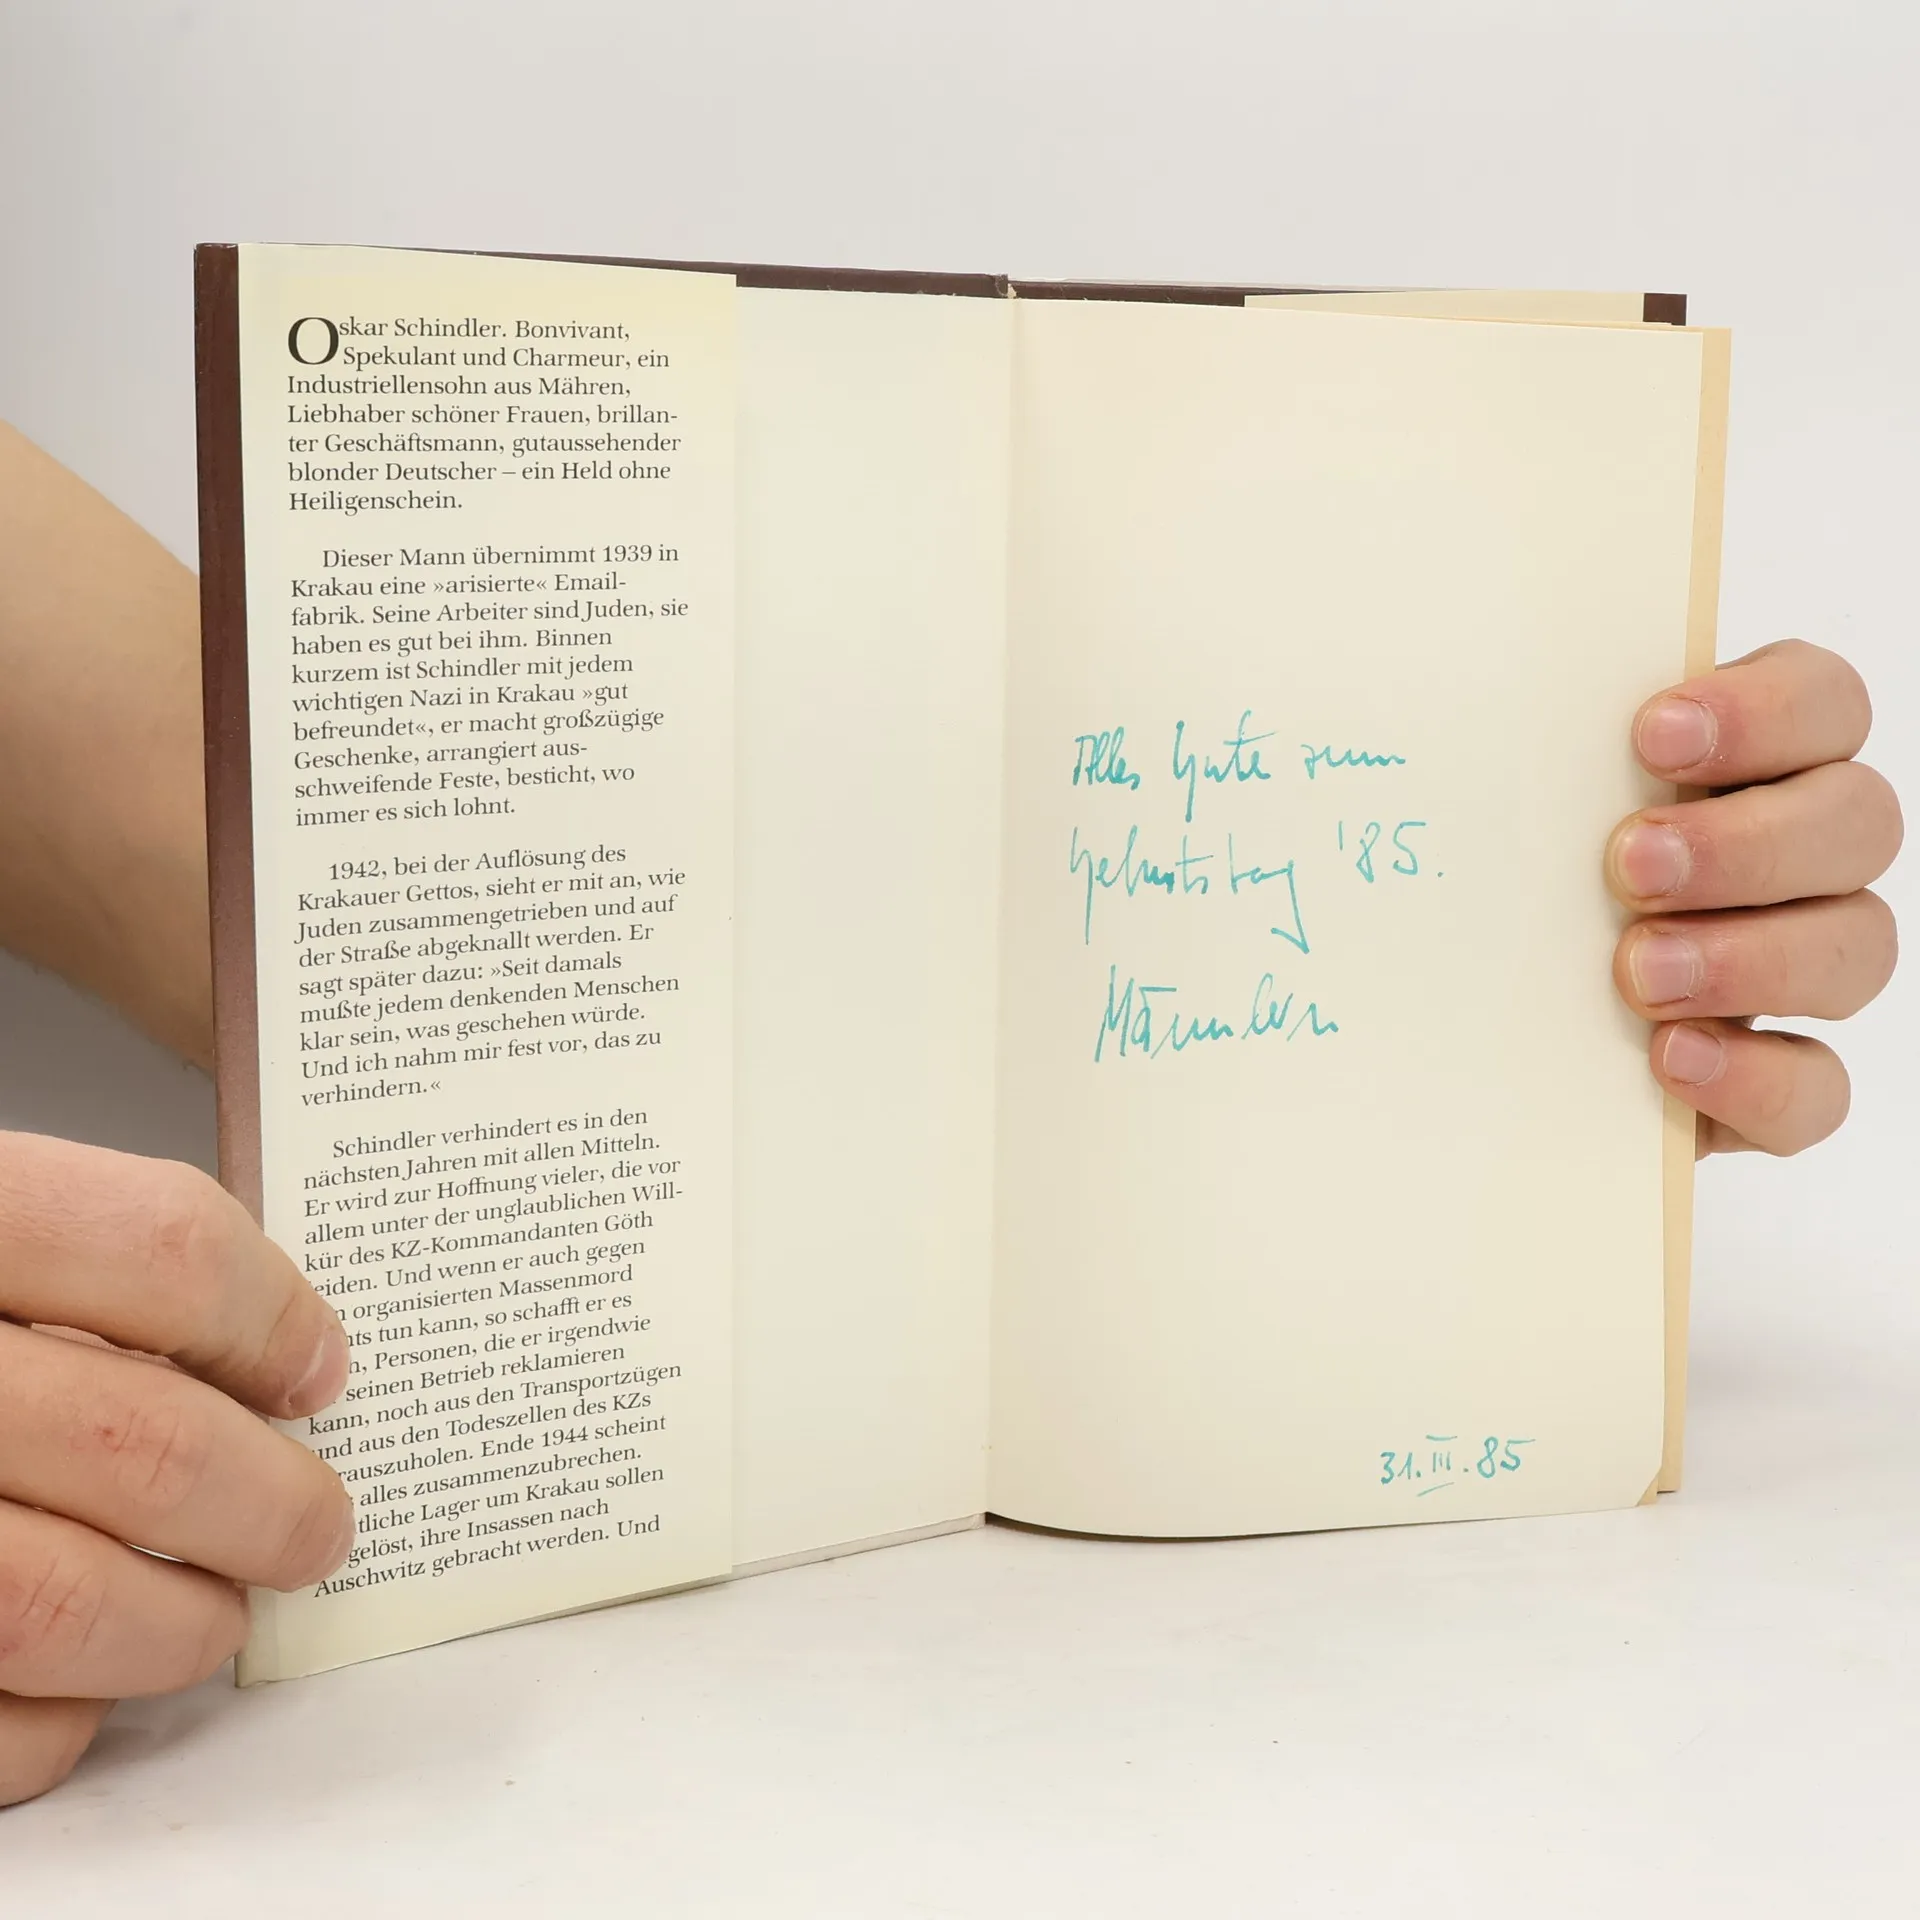 Oskar Schindler. Bonvivant,
Spekulant und Charmeur, ein
Industriellensohn aus Mähren,
Liebhaber schöner Frauen, brillan-
ter Geschäftsmann, gutaussehender
blonder Deutscher – ein Held ohne
Heiligenschein.
Dieser Mann übernimmt 1939 in
Krakau eine »arisierte« Email-
fabrik. Seine Arbeiter sind Juden, sie
haben es gut bei ihm. Binnen
kurzem ist Schindler mit jedem
wichtigen Nazi in Krakau »gut
befreundet«, er macht großzügige
Geschenke, arrangiert aus-
schweifende Feste, besticht, wo
immer es sich lohnt.
1942, bei der Auflösung des
Krakauer Gettos, sieht er mit an, wie
Juden zusammengetrieben und auf
der Straße abgeknallt werden. Er
sagt später dazu: »Seit damals
mußte jedem denkenden Menschen
klar sein, was geschehen würde.
Und ich nahm mir fest vor, das zu
verhindern.«
Schindler verhindert es in den
nächsten Jahren mit allen Mitteln.
Er wird zur Hoffnung vieler, die vor
allem unter der unglaublichen Will-
kür des KZ-Kommandanten Göth
eiden. Und wenn er auch gegen
n organisierten Massenmord
hts tun kann, so schafft er es
h, Personen, die er irgendwie
seinen Betrieb reklamieren
kann, noch aus den Transportzügen
und aus den Todeszellen des KZs
rauszuholen. Ende 1944 scheint
alles zusammenzubrechen.
tliche Lager um Krakau sollen
gelöst, ihre Insassen nach
Auschwitz gebracht werden. Und
Alles Gute zum
Geburtstag '85.
31.III.85